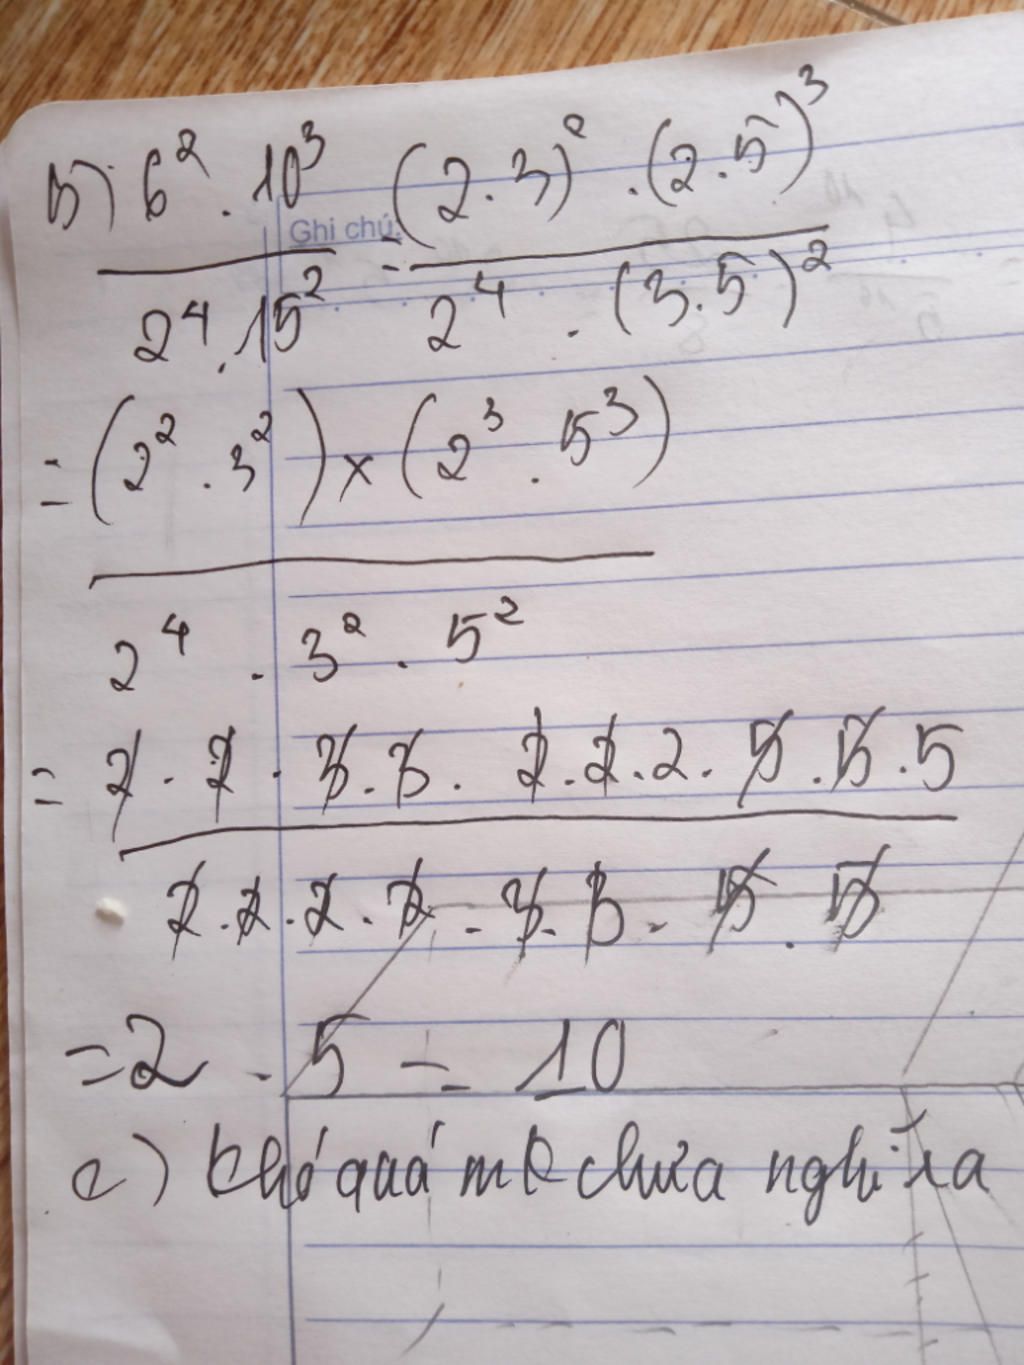 b) 6² . 10³ / 2⁴ . 15² = (2 . 3)² . (2 . 5)³ / 2⁴ . (3 . 5)²
Ghi chú:
= (2² . 3²) × (2³ . 5³)
2⁴ . 3² . 5²
= 2 . 2 . 3 . 3 . 2 . 2 . 2 . 5 . 5 . 5
2 . 2 . 2 . 2 . 3 . 3 . 5 . 5
= 2 . 5 = 10
c) khó quá mk chưa nghĩ ra